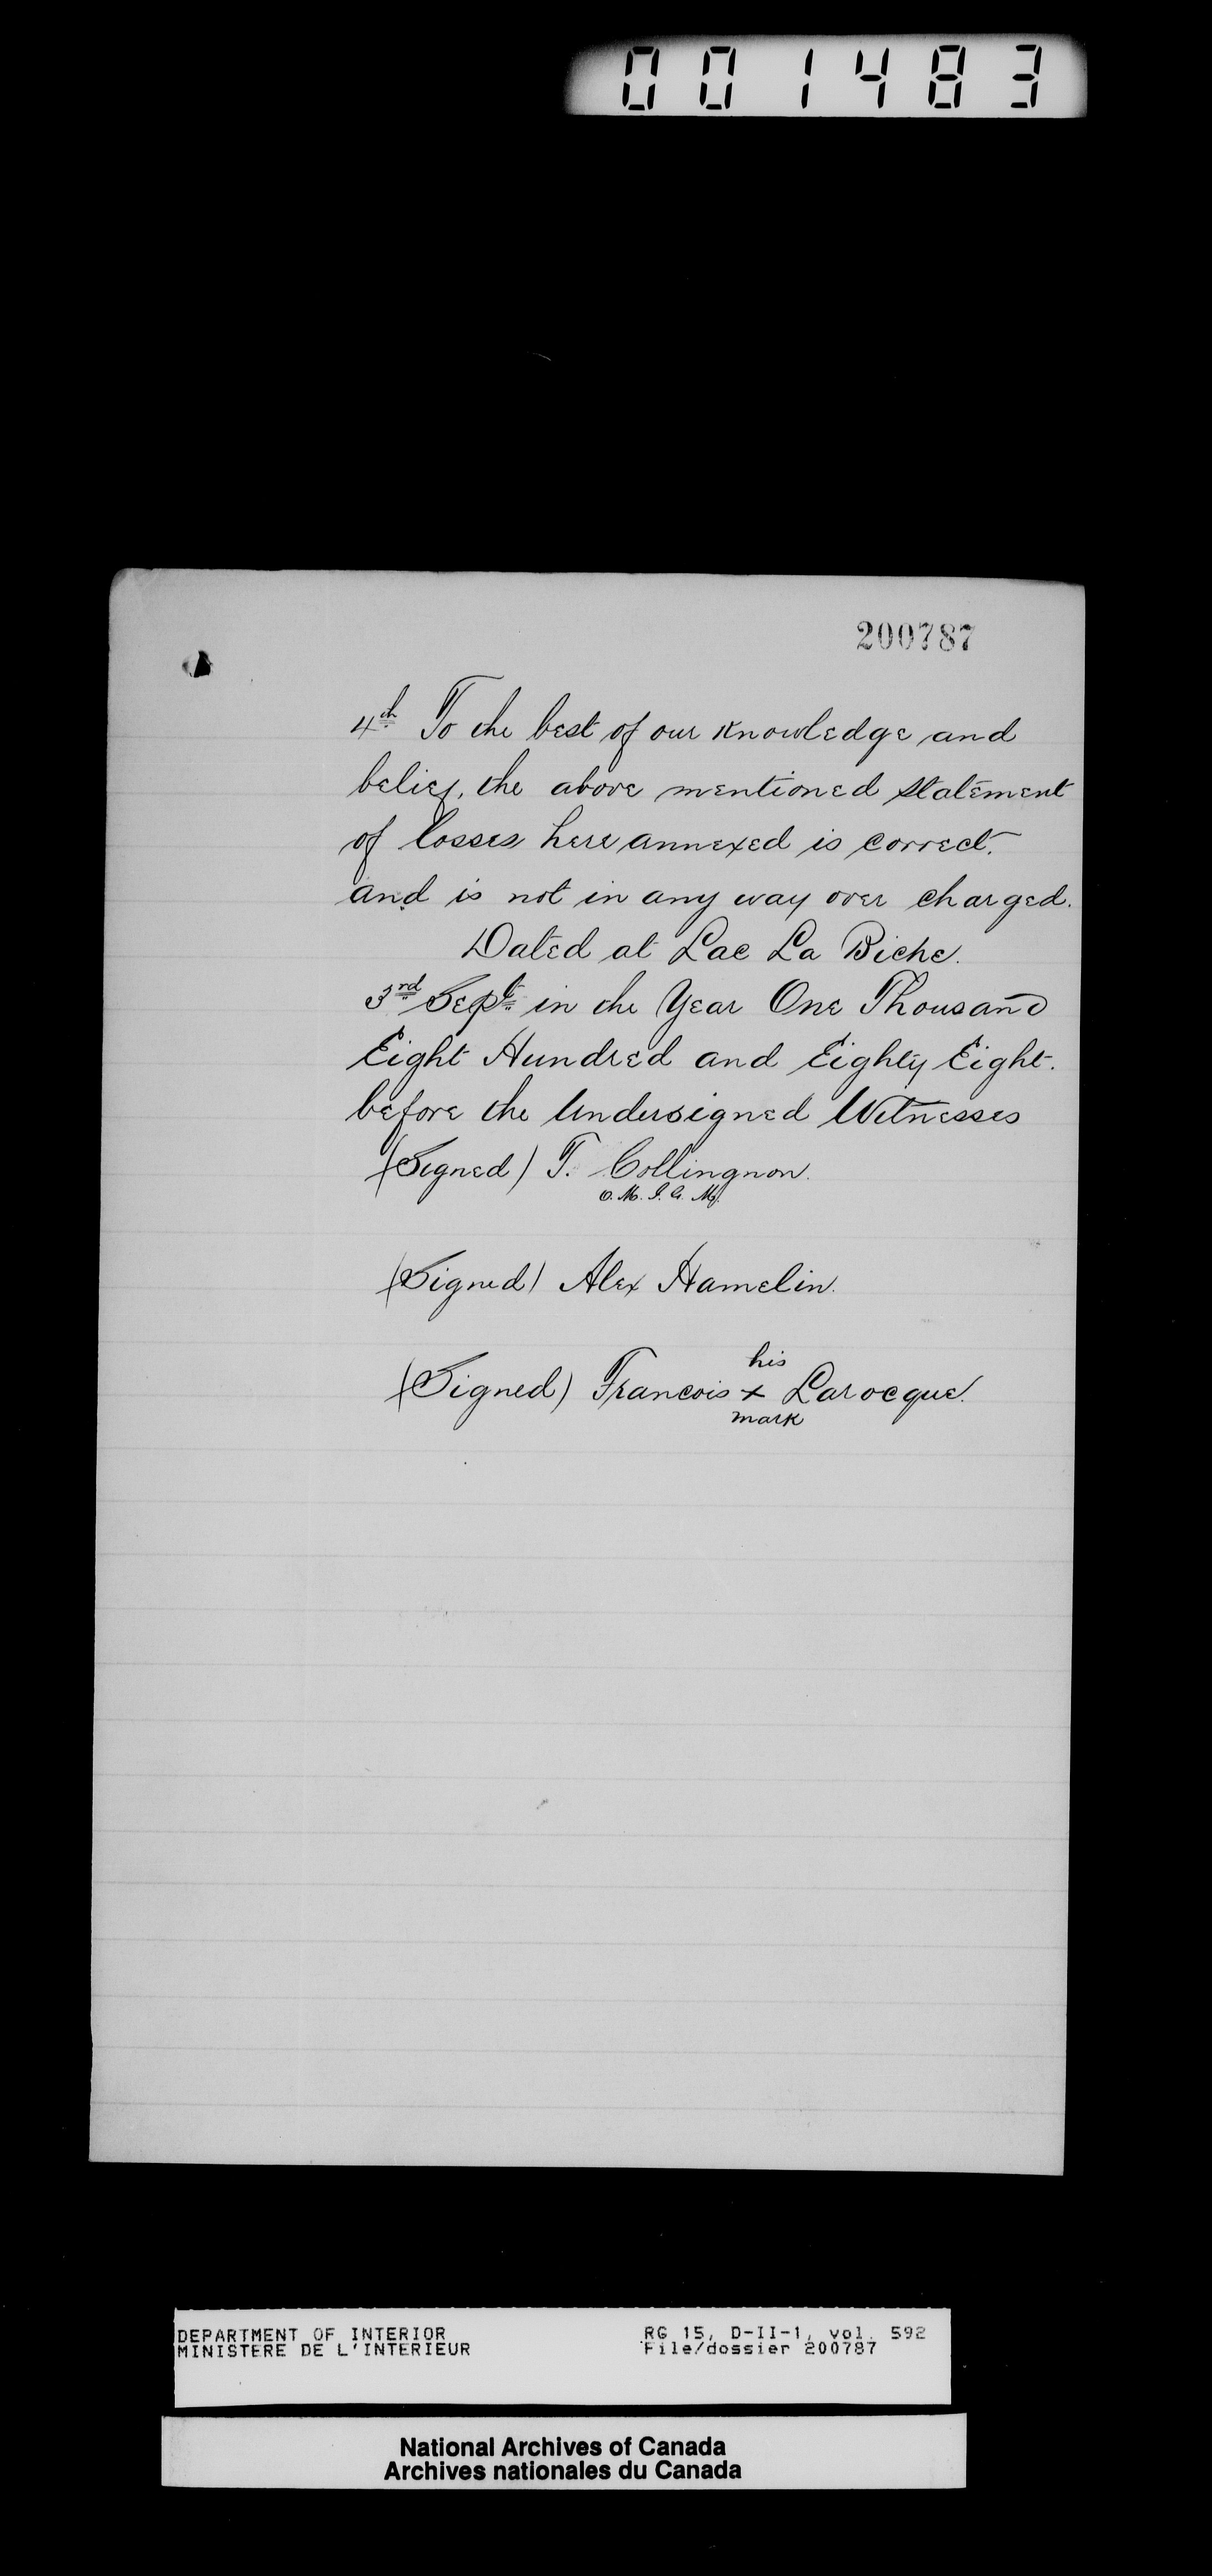 001483
200787
4th To the best of our Knowledge and
belief, the above mentioned Statement
of losses here annexed is correct.
and is not in any way over charged.
Dated at Lac La Biche.
3rd Sept in the Year One Thousand
Eight Hundred and Eighty Eight.
before the Undersigned Witnesses
(Signed) T. Collingnon.
O. M. I.
(Signed) Alex Hamelin.
his
(Signed) Francois x Larocque.
mark
DEPARTMENT OF INTERIOR RG 15, D-II-1, vol. 592
MINISTERE DE L'INTERIEUR File/dossier 200787
National Archives of Canada
Archives nationales du Canada